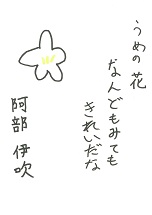 うめの花
なんどもみても
きれいだな
阿部 伊吹